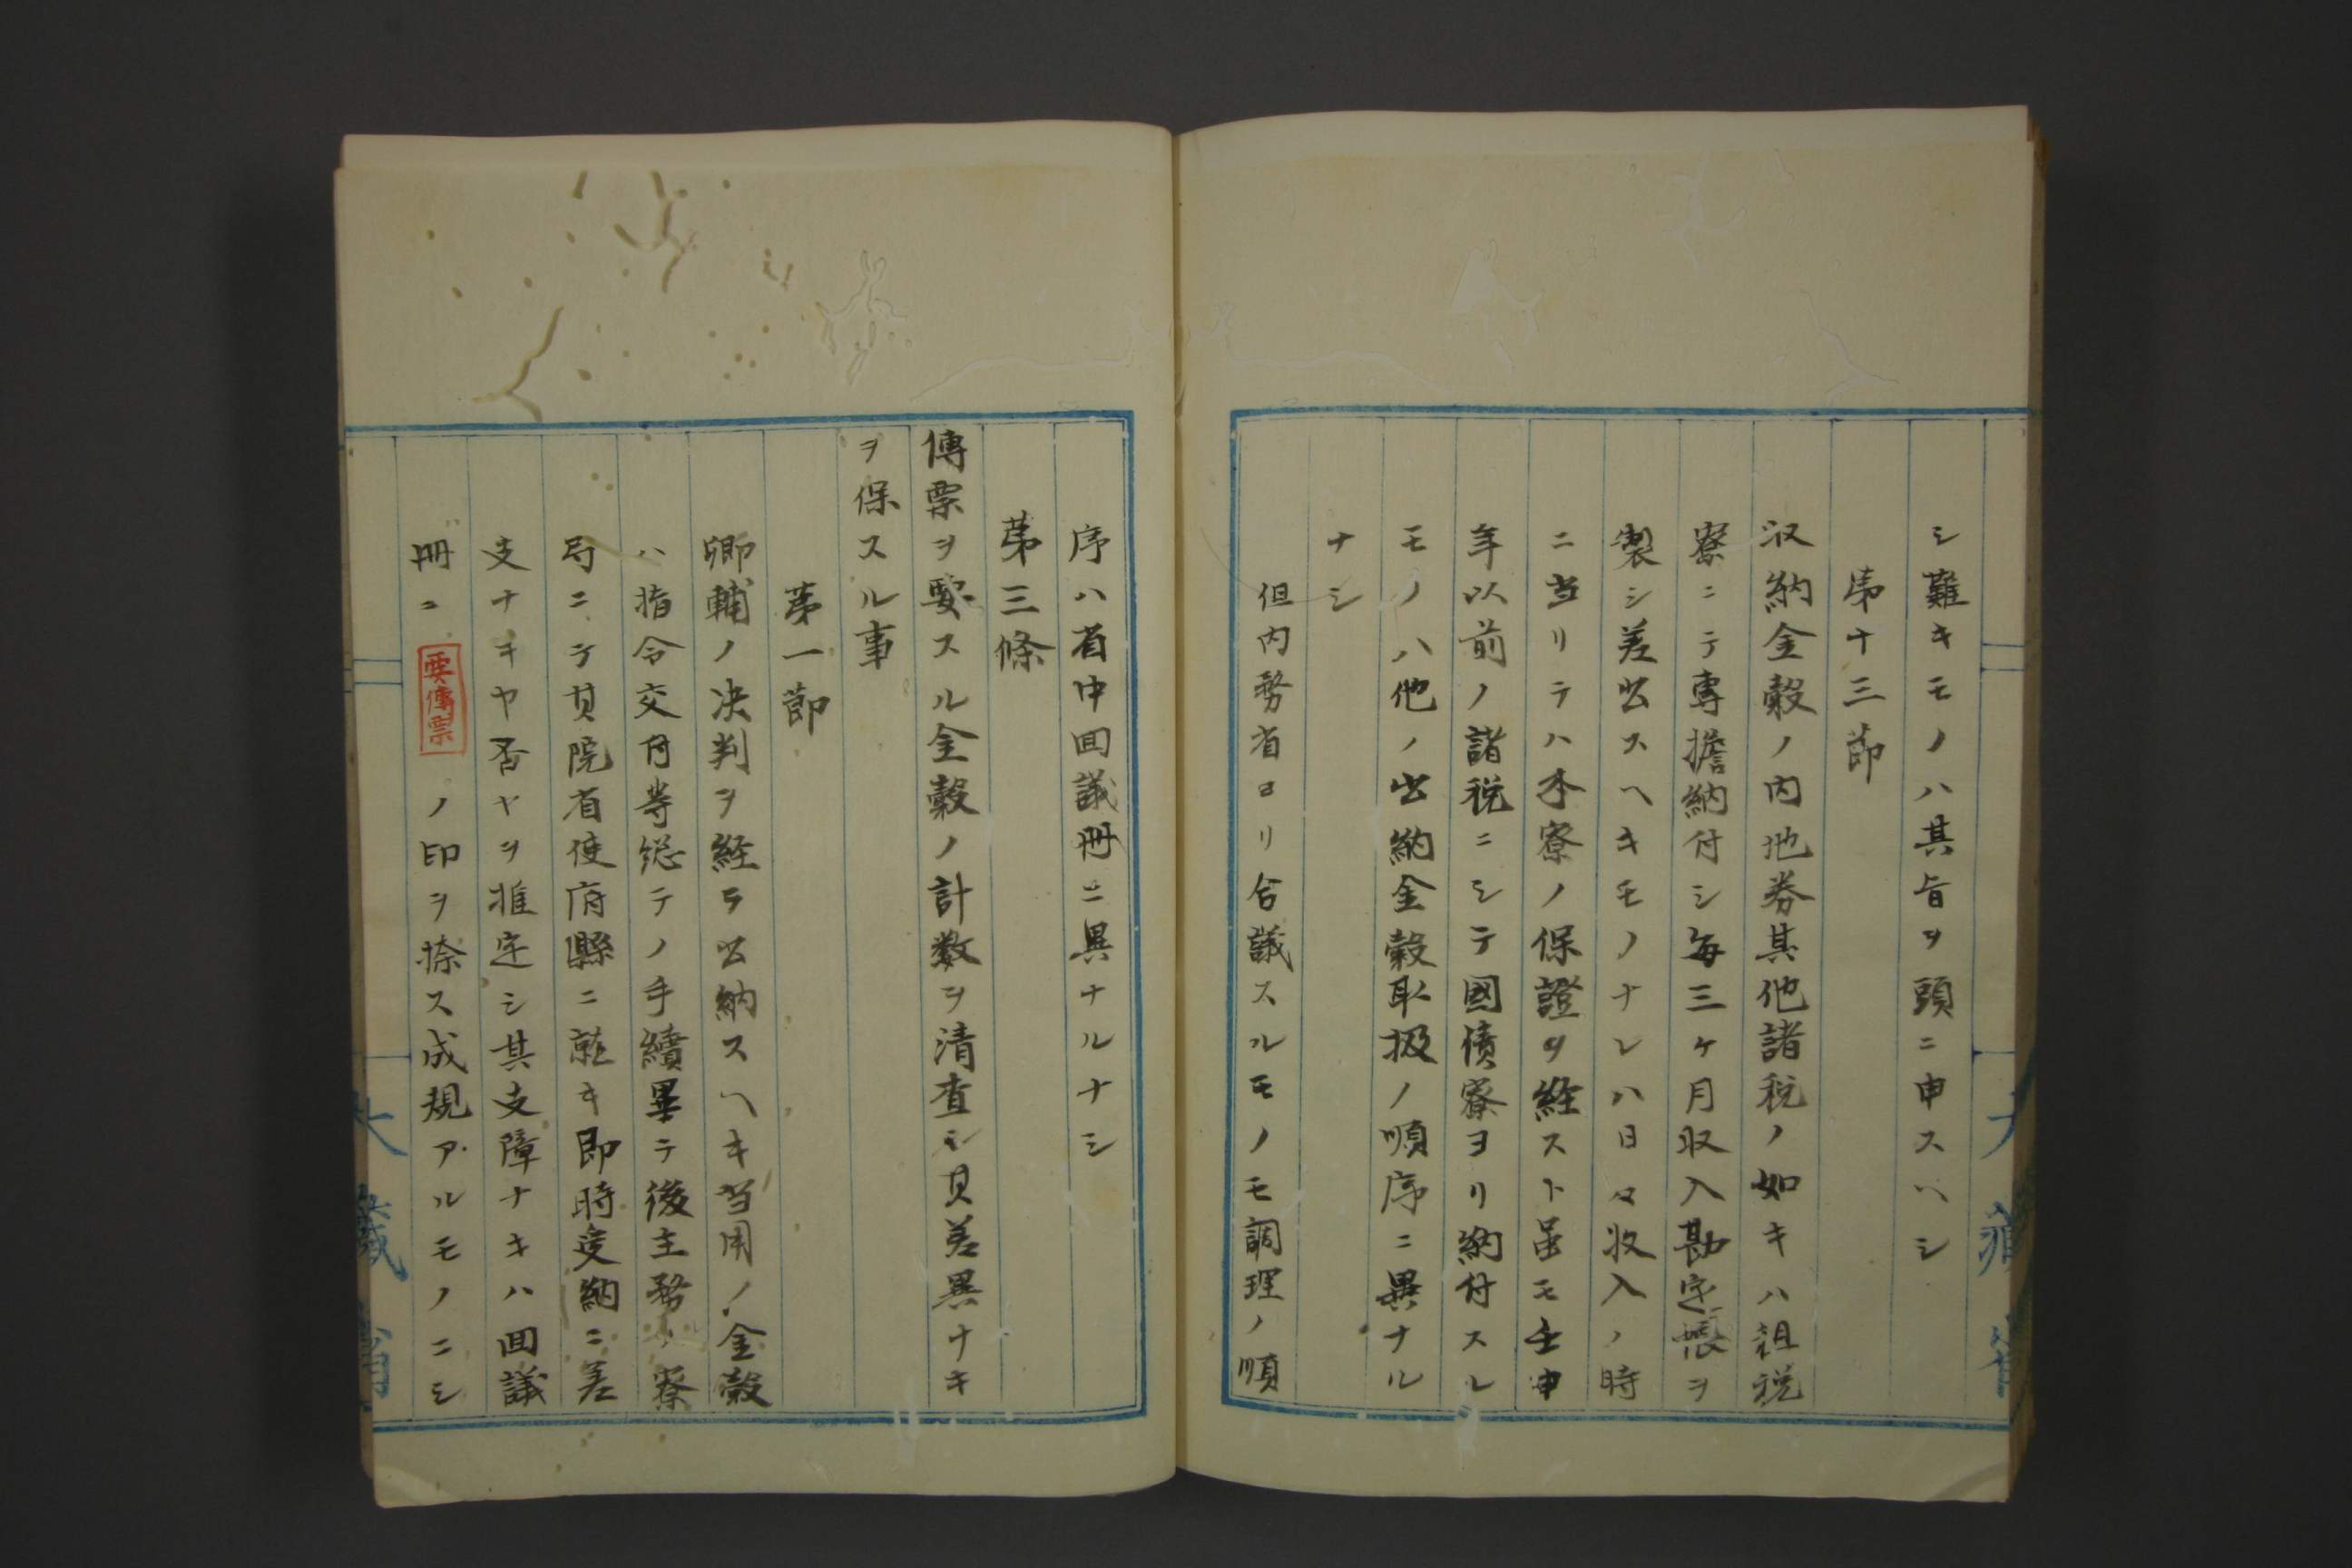 シ難キモノハ其旨ヲ頭ニ申スヘシ
第十三節
収納金穀ノ内地券其他諸税ノ如キハ租税
寮ニテ専擔納付シ毎三ケ月収入勘定帳ヲ
製シ差出スヘキモノナレハ日々收入ノ時
ニ当リテハ本寮ノ保證ヲ経スト虽モ壬申
年以前ノ諸税ニシテ國債寮ヨリ納付スル
モノハ他ノ出納金穀取扱ノ順序ニ異ナル
ナシ
但内務省ヨリ合議スルモノモ調理ノ順
序ハ省中回議冊ニ異ナルナシ
第三條
傳票ヲ要スル金穀ノ計数ヲ清査シ其差異ナキ
ヲ保スル事
第一節
卿輔ノ决判ヲ経テ出納スヘキ当用ノ金穀
ハ指令交付等総テノ手續畢テ後主務ノ寮
局ニテ其院省使府縣ニ就キ即時受納ニ差
支ナキヤ否ヤヲ推定シ其支障ナキハ回議
冊ニ 要傳票 ノ印ヲ捺ス成規アルモノニシ
大藏省